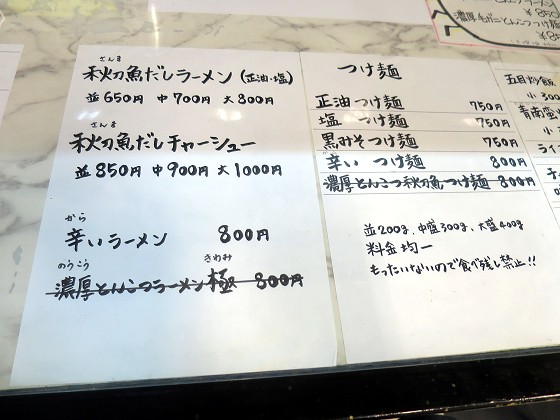 さんま
秋刀魚だしラーメン(正油・塩)
並650円 中700円 大800円
さんま
秋刀魚だしチャーシュー
並850円 中900円 大1000円
から
辛いラーメン 800円
のうこう きわみ
濃厚とんこつラーメン極 800円
つけ麺
正油つけ麺 750円
塩 つけ麺 750円
黒みそつけ麺 750円
辛い つけ麺 800円
濃厚とんこつ秋刀魚つけ麺 800円
並200g、中盛300g、大盛400g
料金均一
もったいないので食べ残し禁止!!
¥850
五目炒飯
小 300